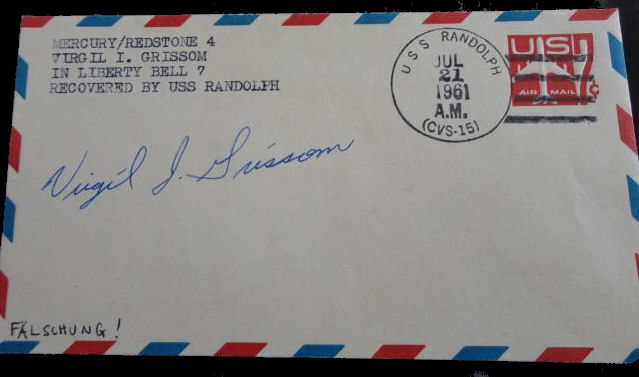 MERCURY/REDSTONE 4
VIRGIL I. GRISSOM
IN LIBERTY BELL 7
RECOVERED BY USS RANDOLPH
USS RANDOLPH
JUL
21
1961
A.M.
(CVS-15)
US
AIR MAIL
7¢
Virgil I. Grissom
FÄLSCHUNG!